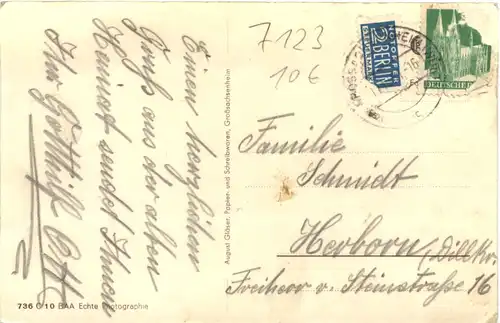 7123
10€
NOTOPFER
2 BERLIN
STEUERMARKE
DEUTSCHE
Einen herzlichen
Gruß aus der alten
Heimat sendet Ihnen
Ihr Gotthilf Ott
August Gläser, Papier- und Schreibwaren, Großsachsenheim
Familie
Schmidt
Herborn (Dillkr.
Freiherr v. Steinstraße 16
736 C 10 BAA Echte Photographie